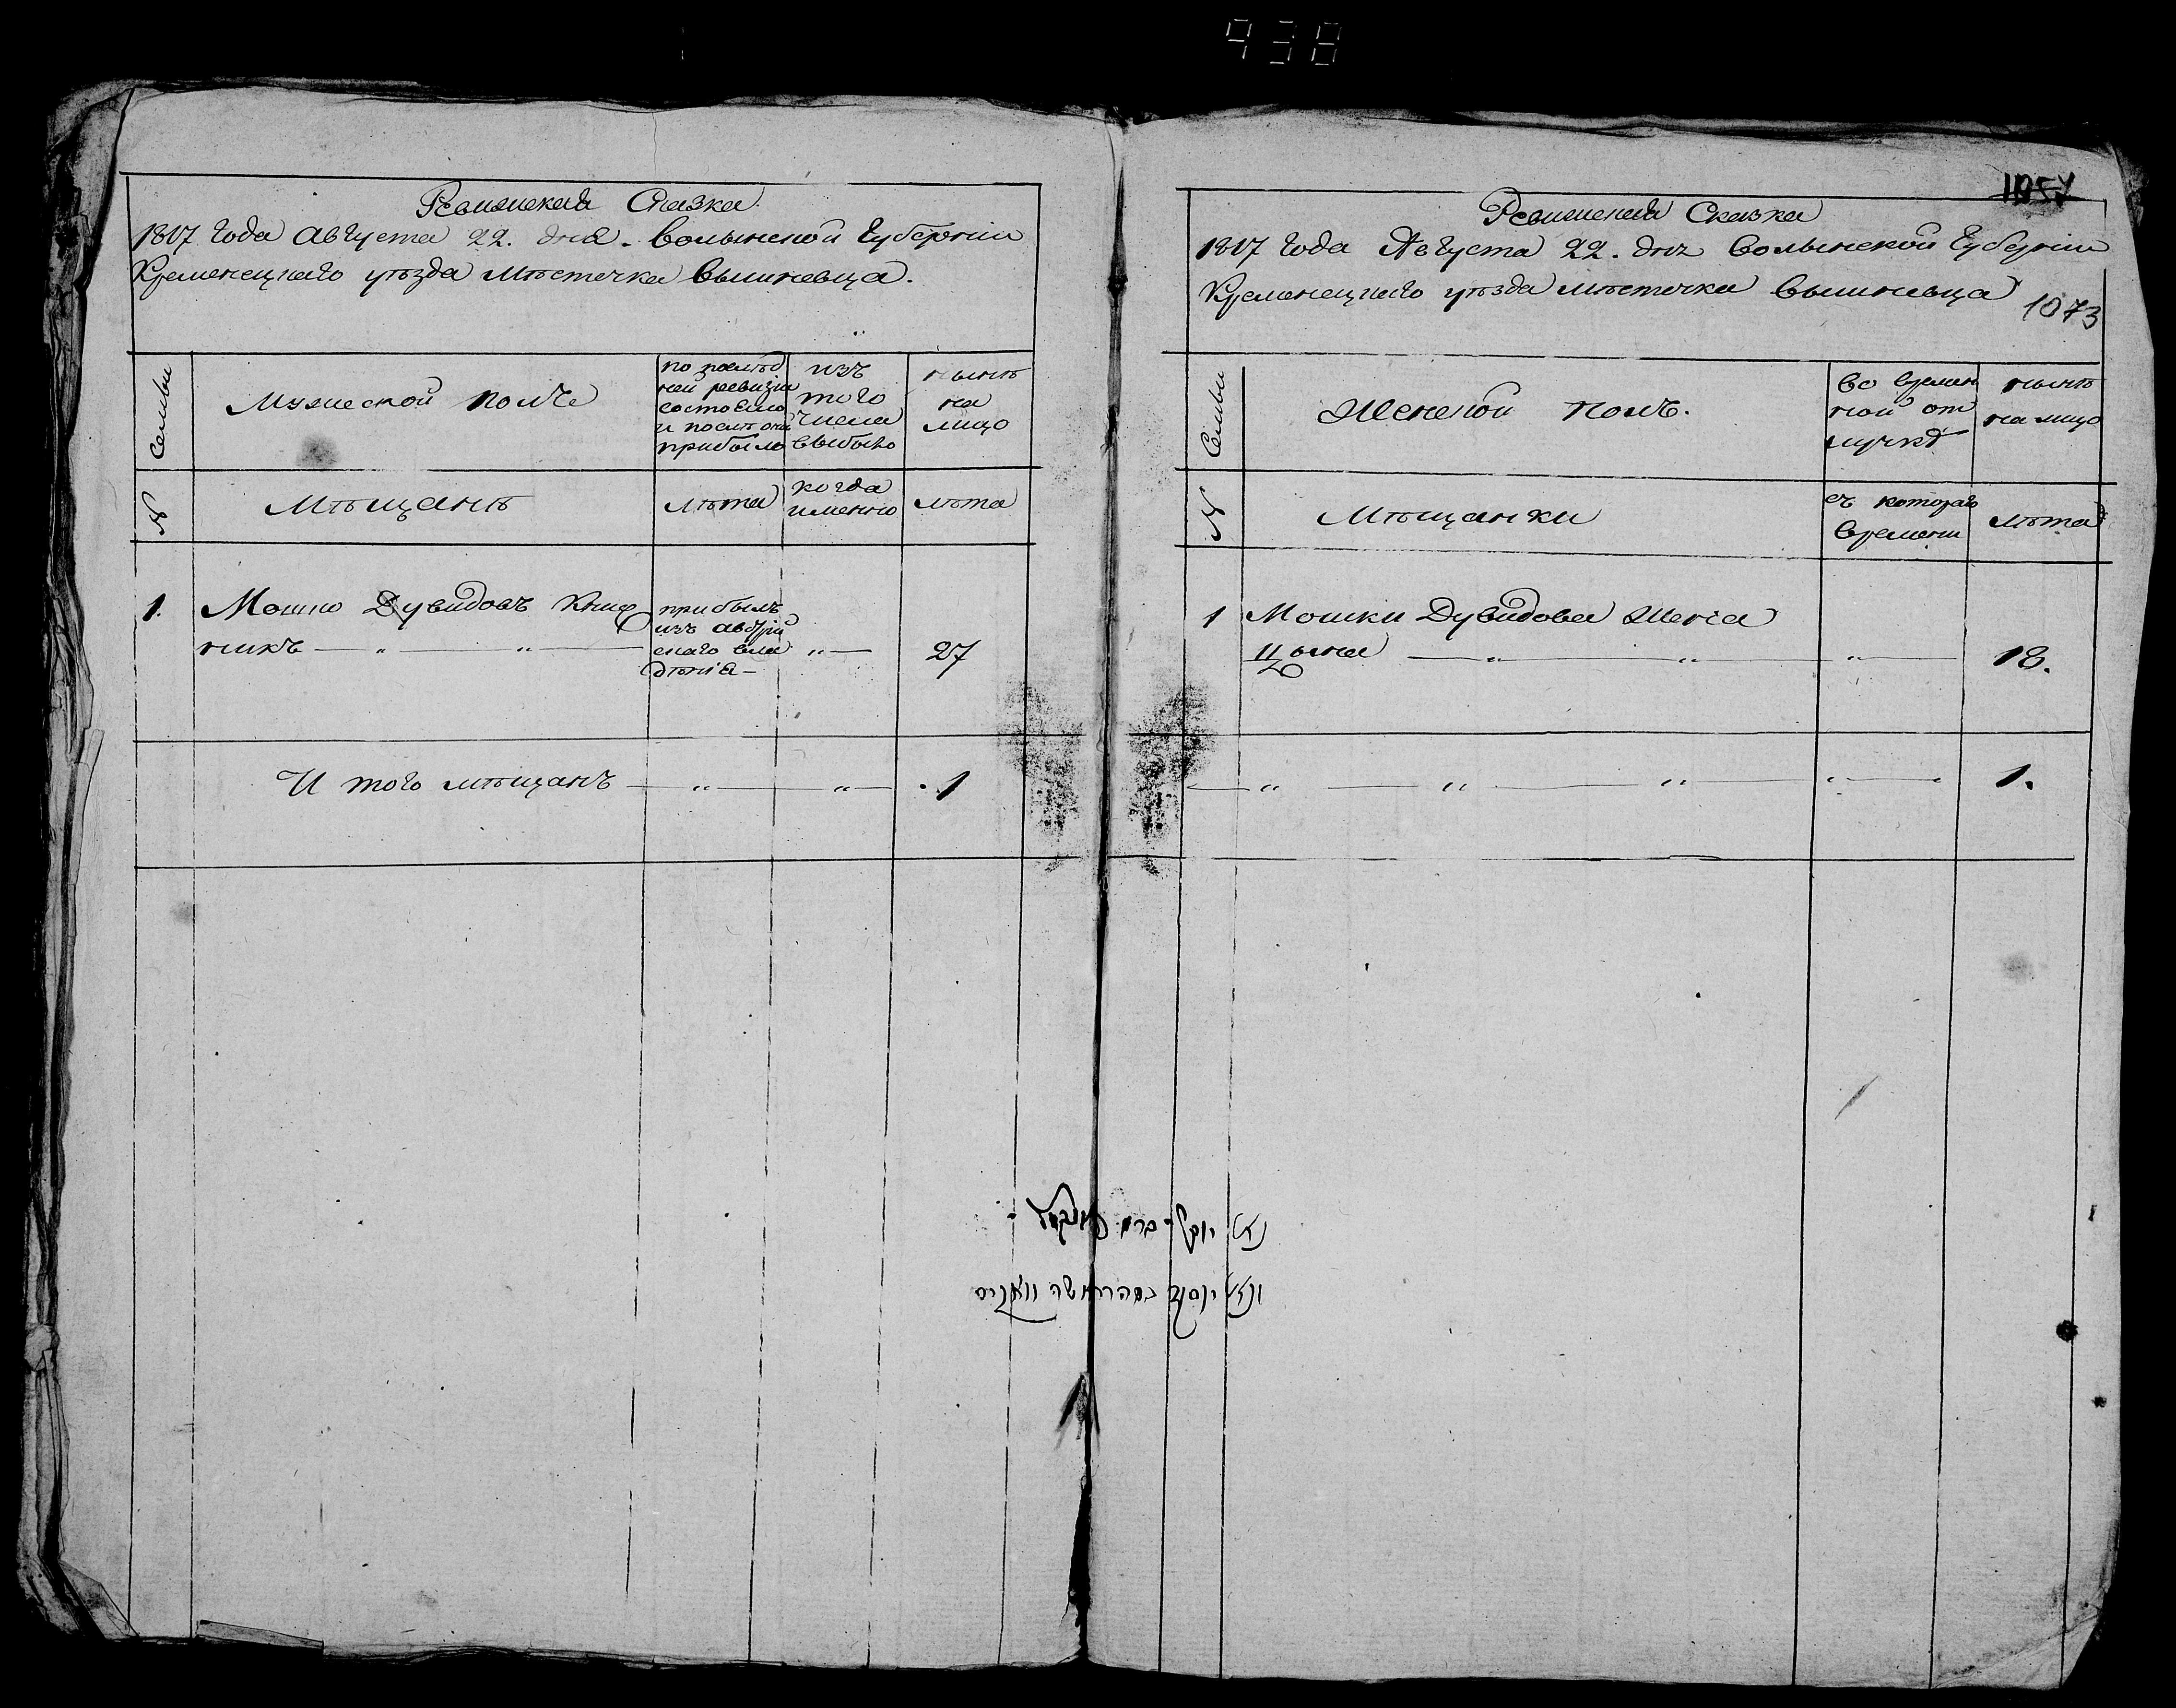 938
Ревижская Сказка.
1817 года августа 22. дня. Волынской Губернии
Кременецкаго уѣзда Мѣстечка Вышневца.
Семьи
Мужеской полъ
по послѣд
ней ревизіи
состояло
и послѣ оной
прибыло
изъ
того
числа
выбыло
нынѣ
на
лицо
№
Мѣщанѣ
лѣта
когда
именно
лѣта
1. Мошко Дувидовъ
никъ — „ — „ —
прибылъ
изъ австрій
скаго вла
дѣнія —
„ —
27
И того мѣщанъ — „ — „ — . 1
1057
Ревижская Сказка
1817 года Августа 22. дня Волынской Губерніи
Кременецкаго уѣзда мѣстечка Вышневца
1073
Семьи
Женской полъ.
во времен
ной от
лучкѣ
нынѣ
на лицо
№
Мѣщанки
съ котораго
времени
лѣта
1 Мошки Дувидова Жена
— „ — „ — „ — 18.
— „ — „ — „ — „ — 1.